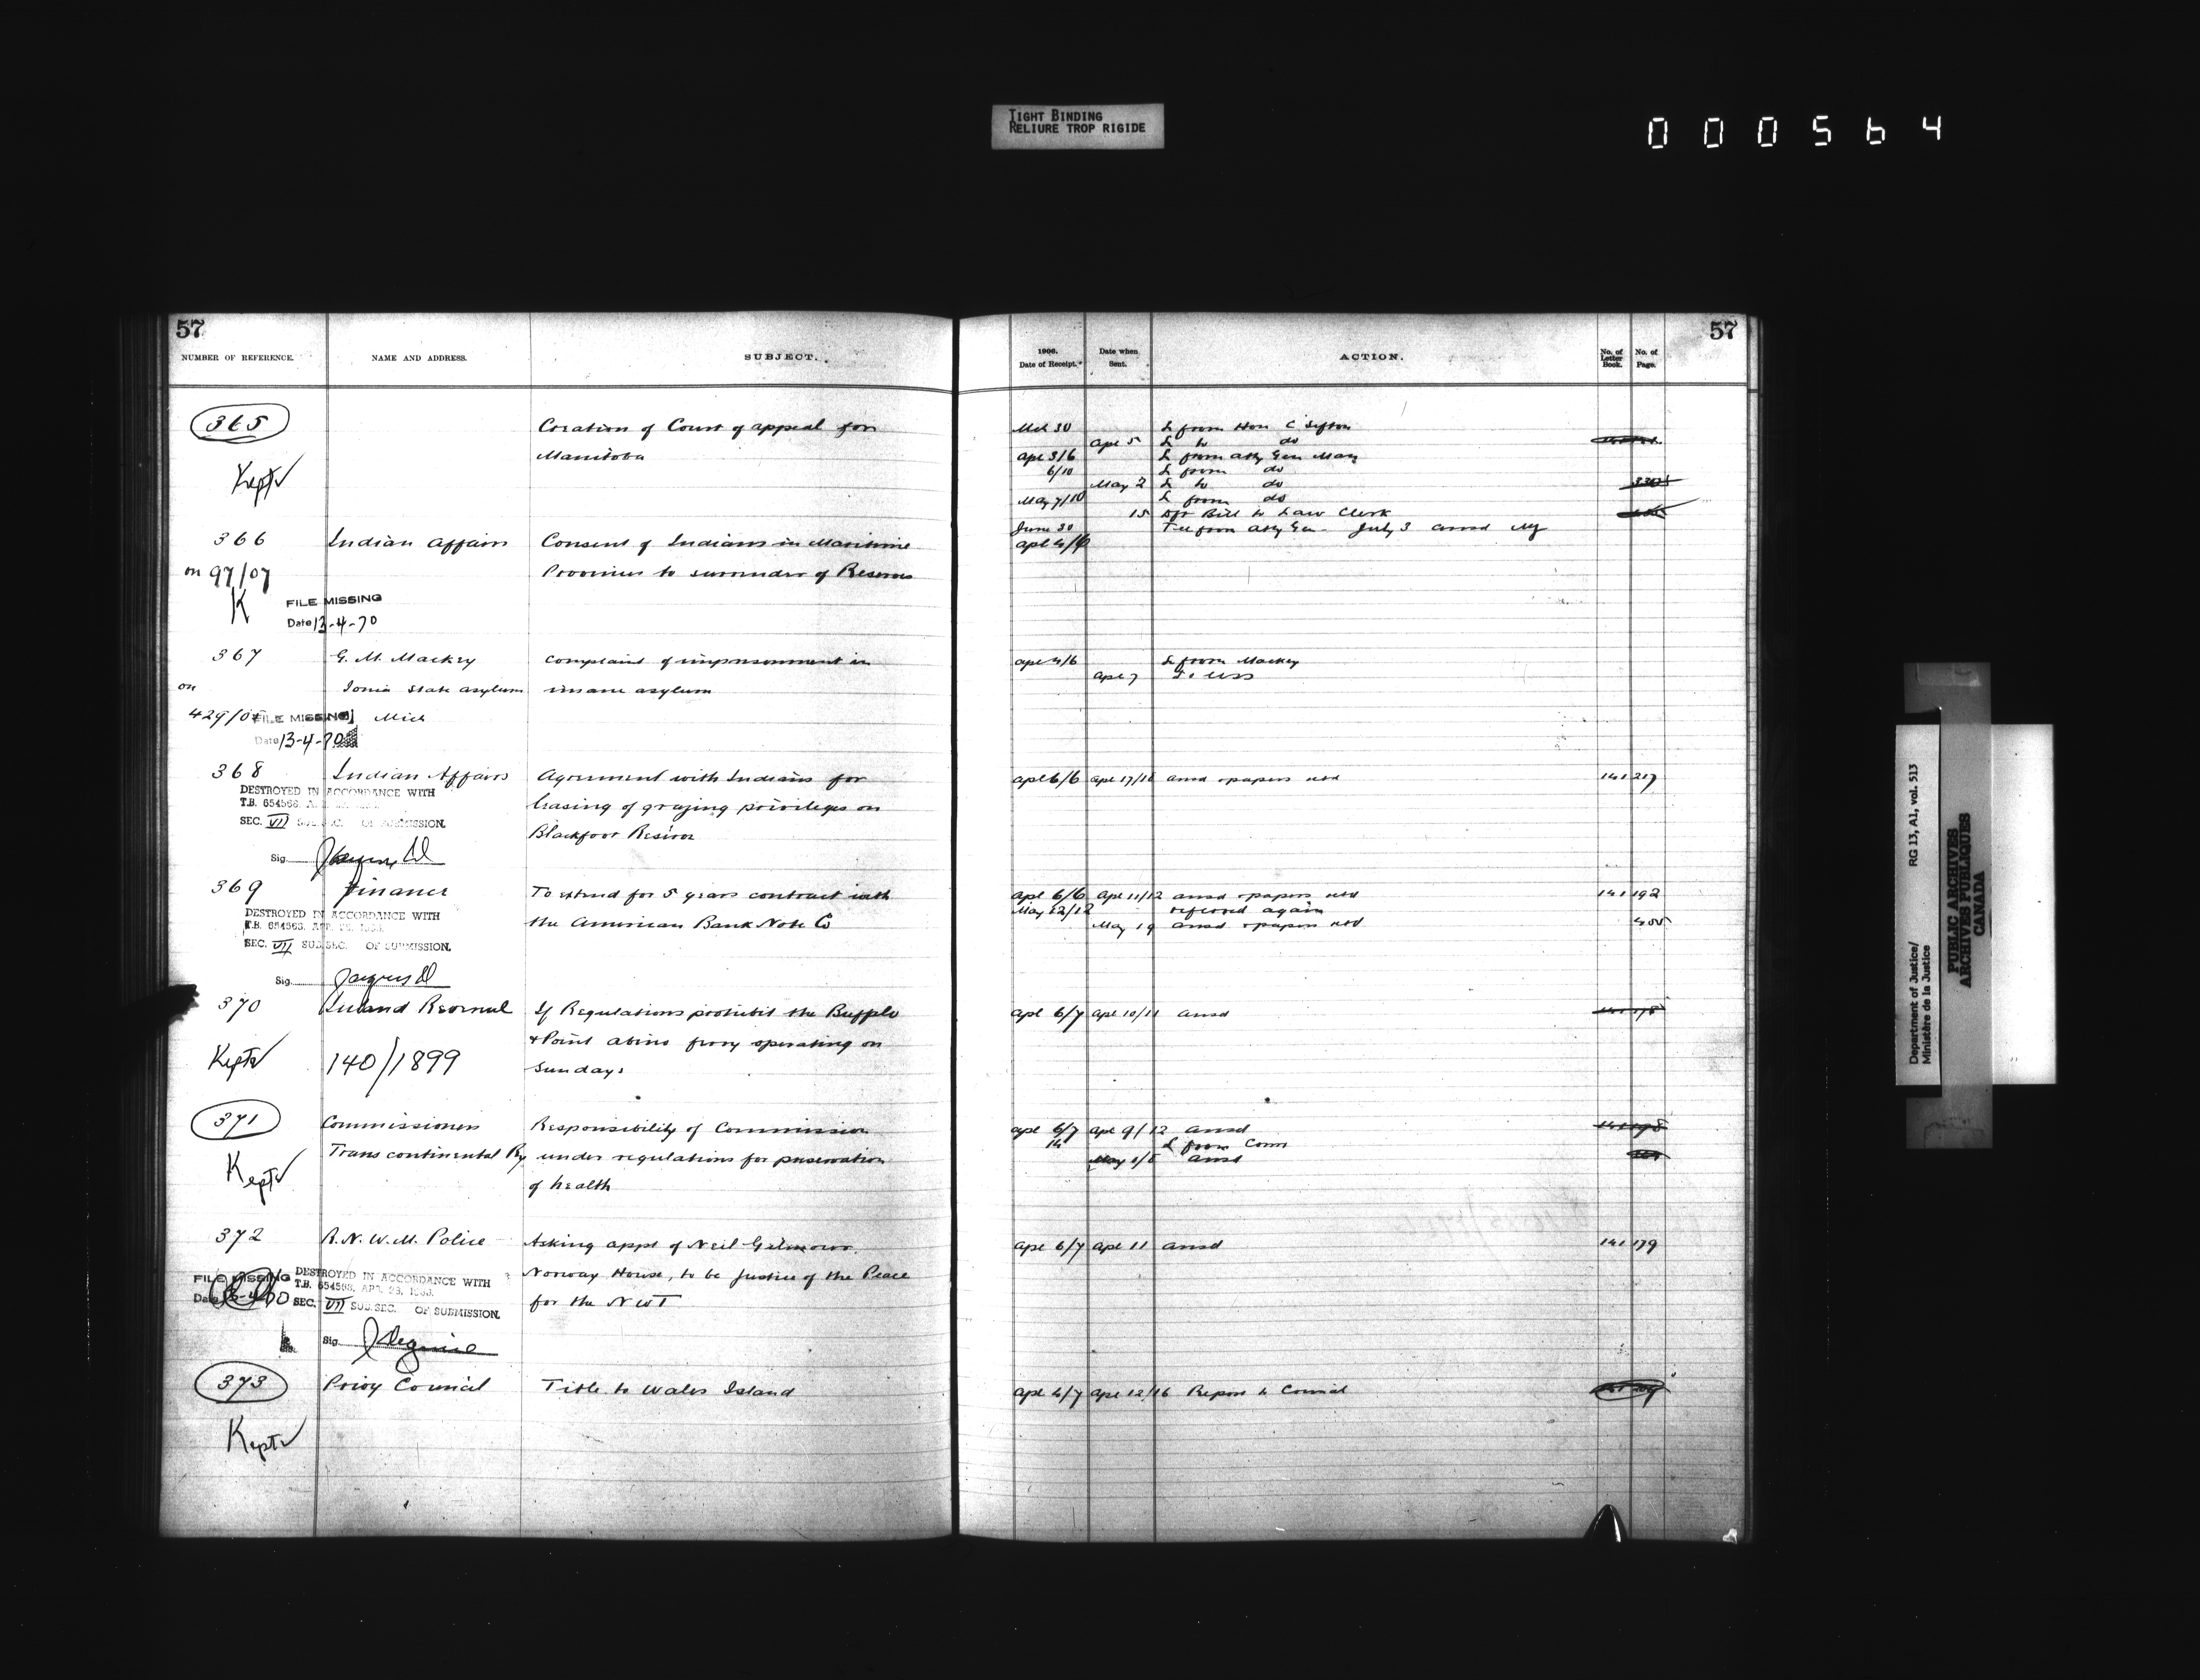 TIGHT BINDING
RELIURE TROP RIGIDE
000564
57
NUMBER OF REFERENCE.
NAME AND ADDRESS.
SUBJECT.
365
Creation of Court of appeal for
Manitoba
Kept
366
Indian Affairs
Consent of Indians in Maritime
on 97/07
Provinces to surrender of Reserves
K
FILE MISSING
Date 13-4-70
367
G. M. Mackey
Complaint of imprisonment in
on
Ionia State asylum
insane asylum
429/0
FILE MISSING
Mich
Date 13-4-70
368
Indian Affairs
Agreement with Indians for
DESTROYED IN ACCORDANCE WITH
T.B. 654563
leasing of grazing privileges on
SEC. VII SUB.SEC. OF SUBMISSION.
Blackfoot Reserve
Sig.
369
Finance
To extend for 5 years contract with
DESTROYED IN ACCORDANCE WITH
T.B. 654563, APR.
the American Bank Note Co
SEC. VII SUB.SEC. OF SUBMISSION.
Sig.
370
Inland Revenue
If Regulations prohibit the Buffalo
& Point Abino ferry operating on
Kept
140/1899
Sundays
371
Commissioners
Responsibility of Commission
Transcontinental Ry
under regulations for preservation
Kept
of health
372
R.N.W.M. Police
Asking appt of Neil Gilmour
FILE MISSING
Date
DESTROYED IN ACCORDANCE WITH
Norway House, to be Justice of the Peace
T.B. 654563, APR. 23,
SEC. VII SUB.SEC. OF SUBMISSION.
for the NWT
Sig.
373
Privy Council
Title to Wales Island
Kept
57
1906.
Date of Receipt.
Date when
Sent.
ACTION.
No. of
Letter
Book.
No. of
Page.
Mch 30
L from Hon C Sifton
Apl 5
L to do
Apl 3/6
L from Atty Gen Man
6/10
L from do
May 2
L to do
May 7/10
L from do
15
Bill to Law Clerk
June 30
Tel from Atty Gen July 3 ansd
Apl 4/6
Apl 4/6
L from Mackey
Apl 7
To USS
Apl 6/6 Apl 17/18 ansd & papers retd 141 217
Apl 6/6 Apl 11/12 ansd & papers retd 141 192
May 12/12
referred again
May 19 ansd & papers retd
Apl 6/7 Apl 10/11 ansd
Apl 6/7 Apl 9/12 ansd
14
L from Comr
May ansd
Apl 6/7 Apl 11 ansd 141 179
Apl 4/7 Apl 12/16 Report to Council
Department of Justice/
Ministère de la Justice
RG 13, A1, vol. 513
PUBLIC ARCHIVES
ARCHIVES PUBLIQUES
CANADA